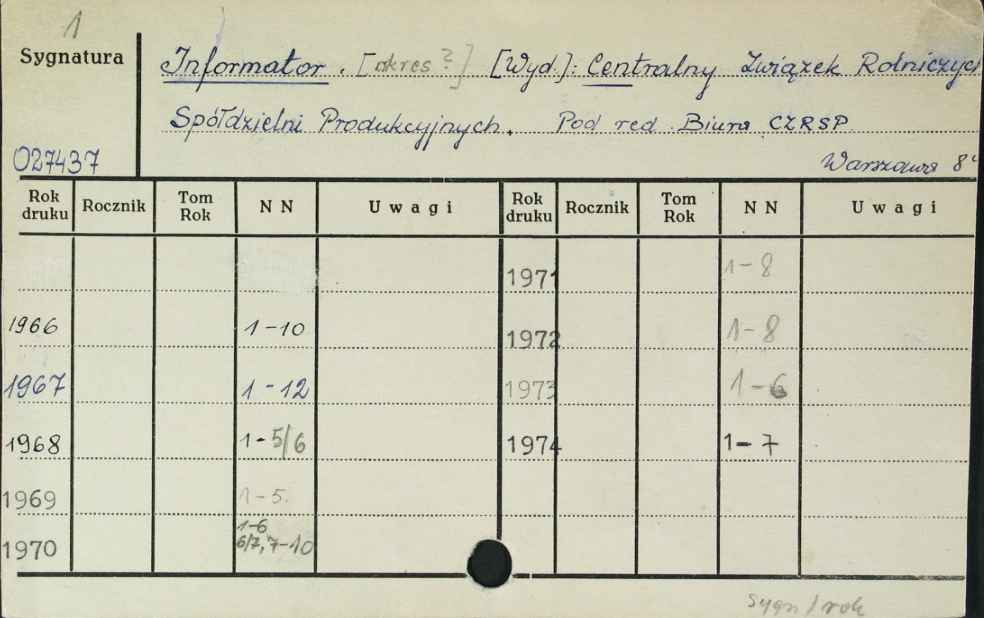 1
Sygnatura
Informator. [okres?] [Wyd.]: Centralny Związek Rolniczych
Spółdzielni Produkcyjnych. Pod red. Biura CZRSP.
027437
Warszawa 8°
Rok druku Rocznik Tom Rok NN Uwagi Rok druku Rocznik Tom Rok NN Uwagi
1971 1-8
1966 1-10 1972 1-8
1967 1-12 1973 1-6
1968 1-5/6 1974 1-7
1969 1-5.
1970 1-6 6/7, 7-10
sygn/rok